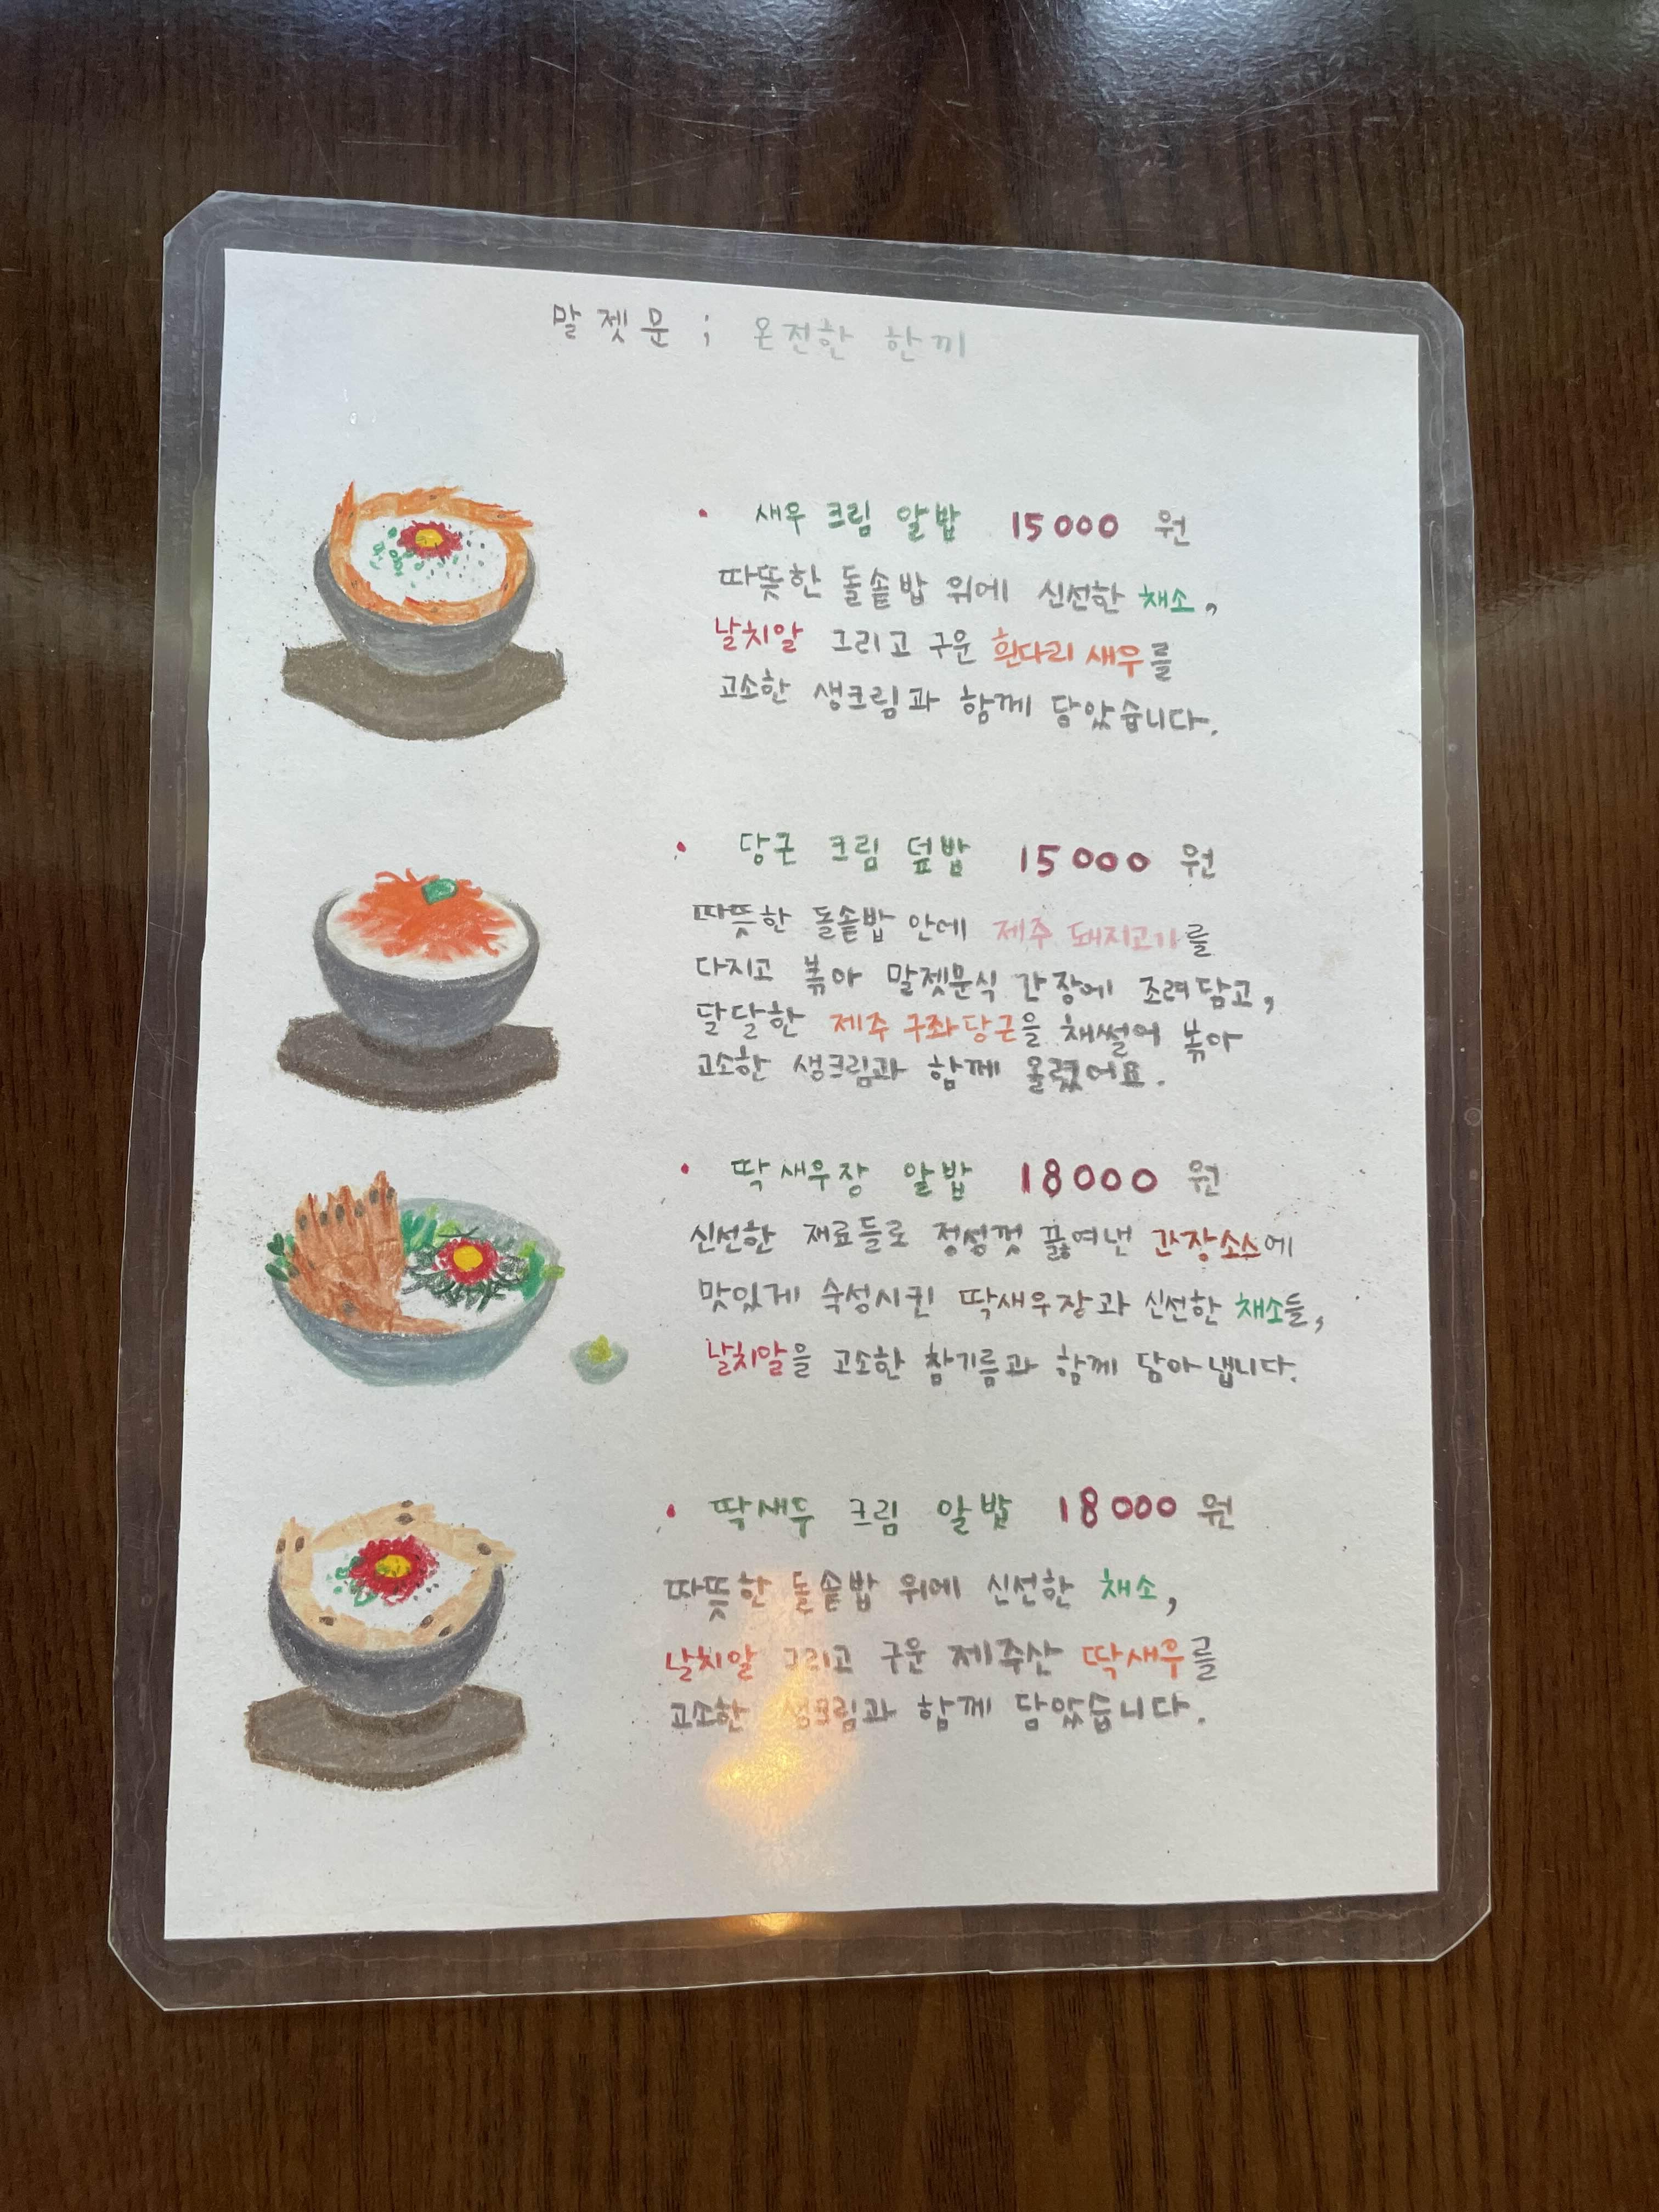 말젯문 ; 온전한 한끼
• 새우 크림 알밥 15000 원
따뜻한 돌솥밥 위에 신선한 채소,
날치알 그리고 구운 흰다리 새우를
고소한 생크림과 함께 담았습니다.
• 당근 크림 덮밥 15000 원
따뜻한 돌솥밥 안에 제주 돼지고기를
다지고 볶아 말젯문식 간장에 조려담고,
달달한 제주 구좌당근을 채썰어 볶아
고소한 생크림과 함께 올렸어요.
• 딱새우장 알밥 18000 원
신선한 재료들로 정성껏 끓여낸 간장소스에
맛있게 숙성시킨 딱새우장과 신선한 채소들,
날치알을 고소한 참기름과 함께 담아 냅니다.
• 딱새우 크림 알밥 18000 원
따뜻한 돌솥밥 위에 신선한 채소,
날치알 그리고 구운 제주산 딱새우를
고소한 생크림과 함께 담았습니다.